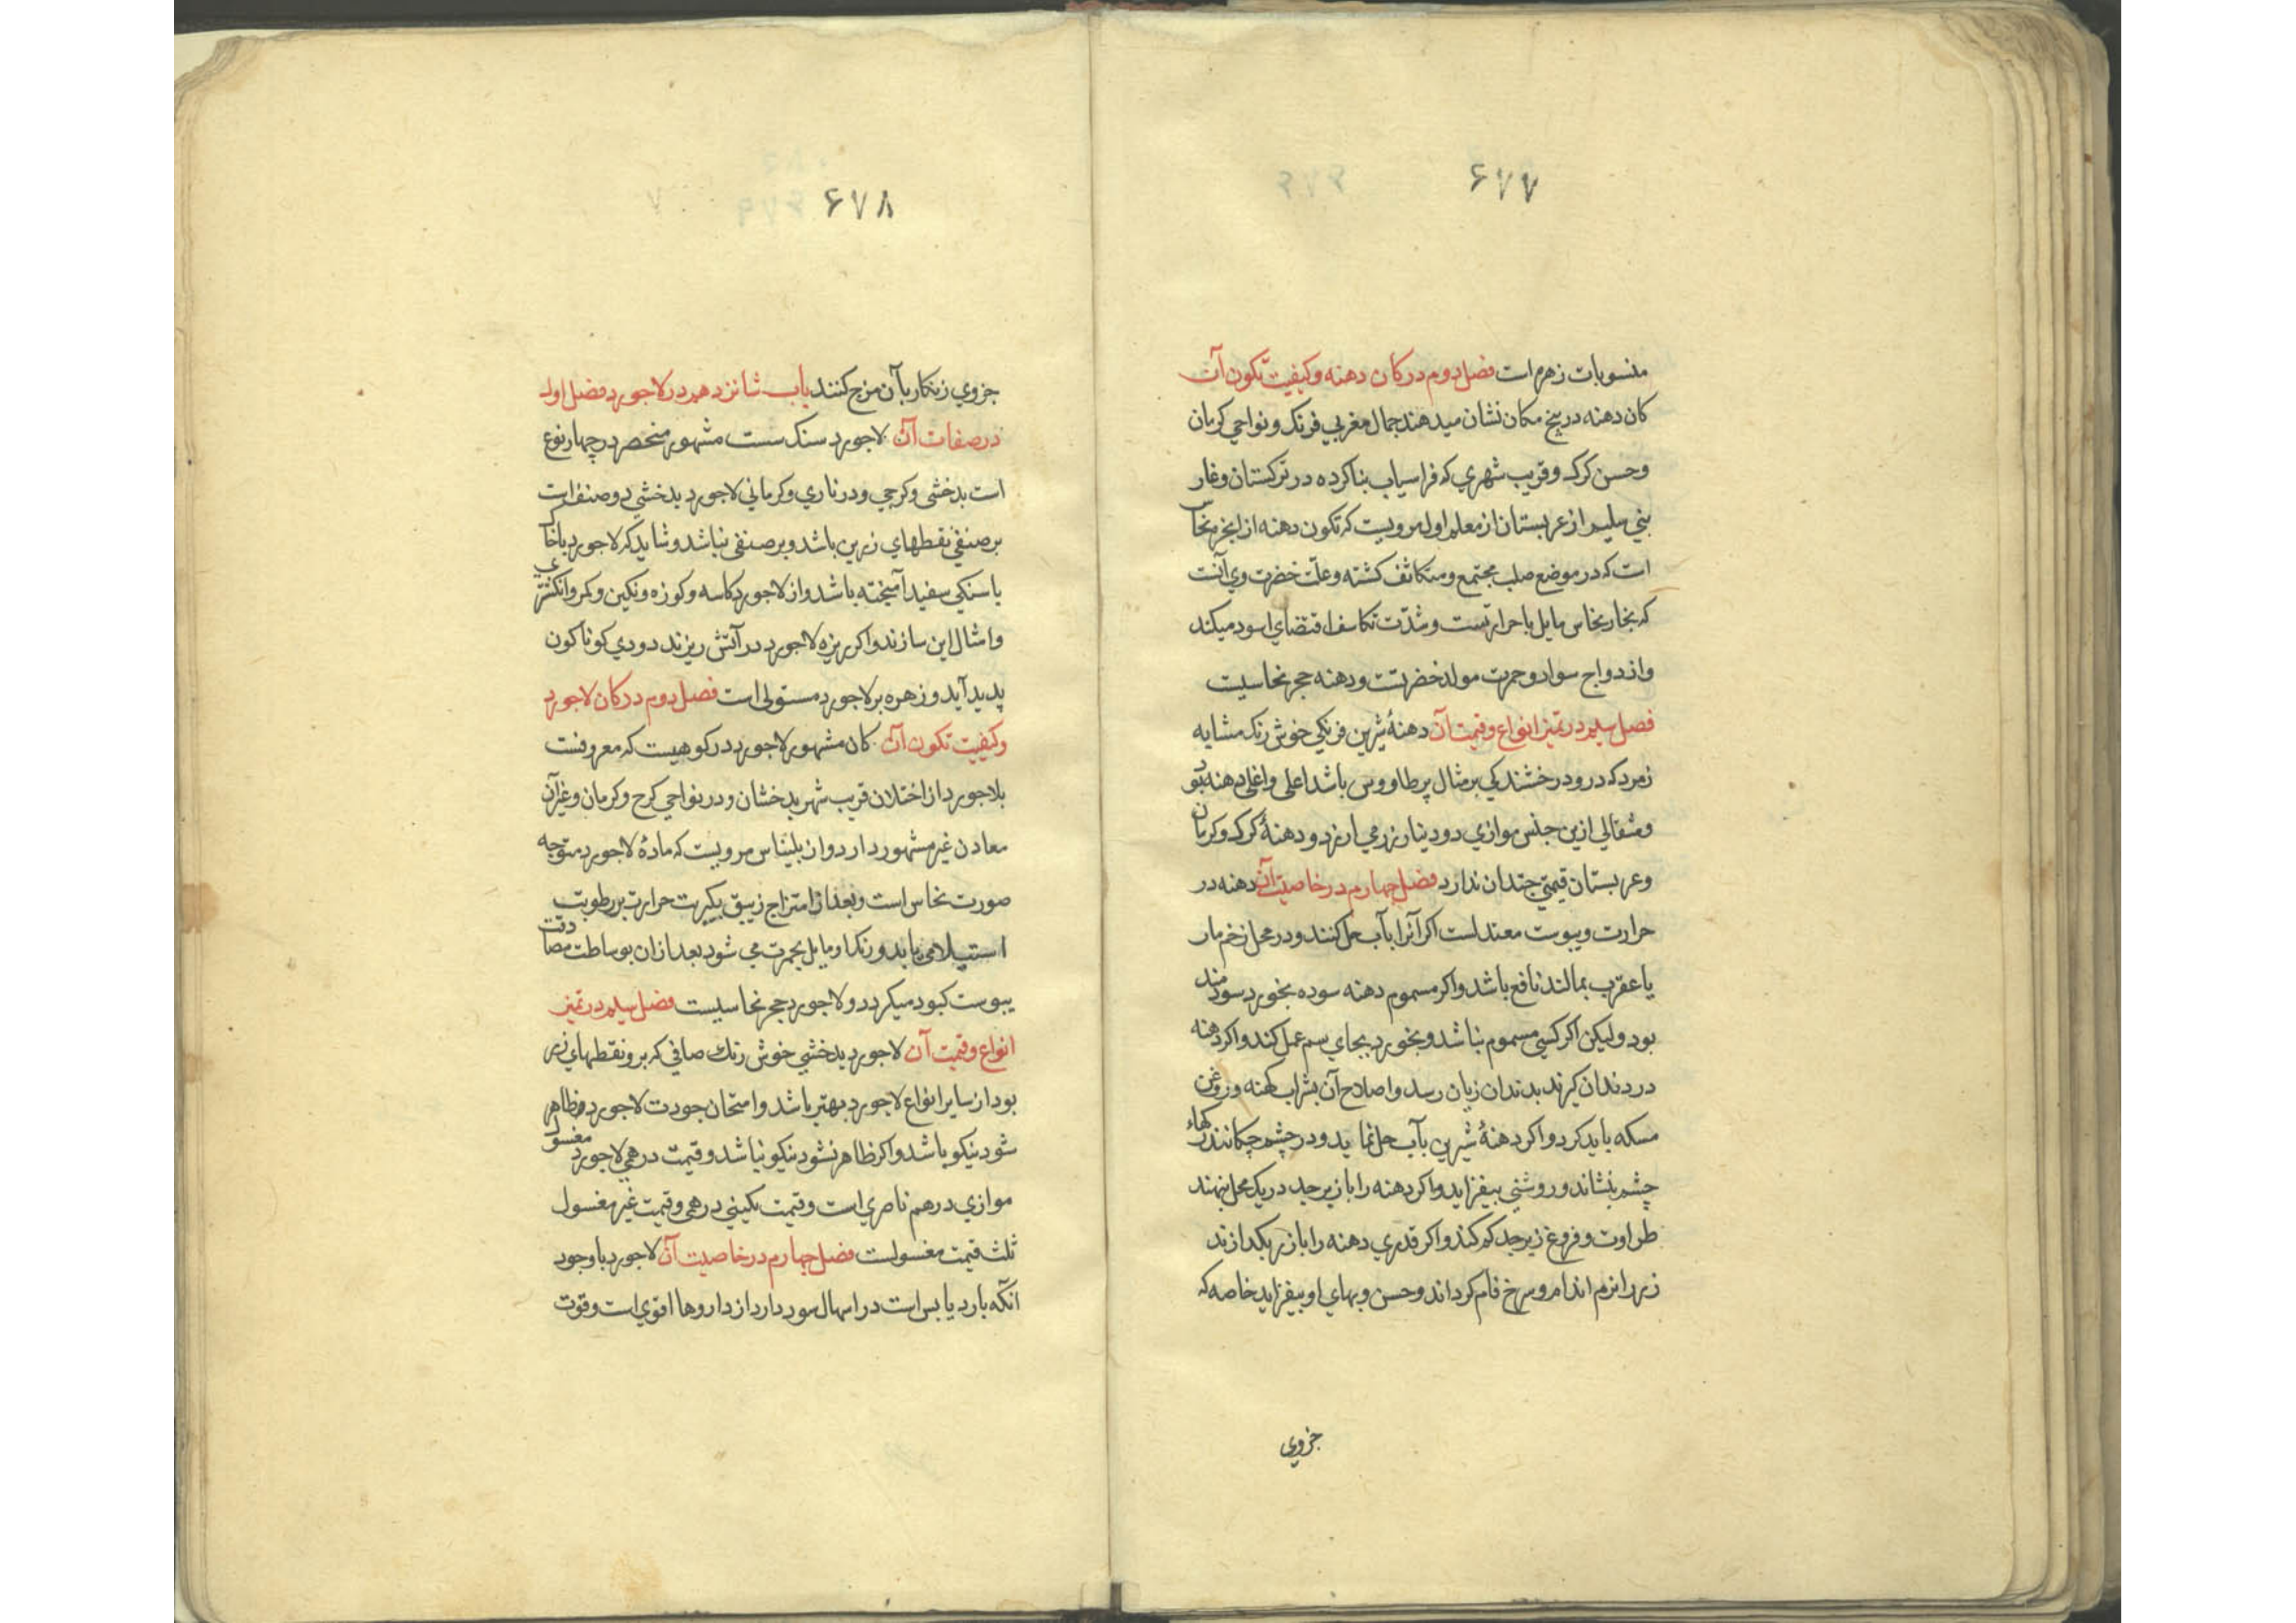 ۶۷۷
منسوبات زهره است فصل دوم در کان دهنه و کیفیت تکون آن
کان دهنه در پنج مکان نشان میدهند جمال مغربی فرنک و نواحی کرمان
و حسن کرک و قریب شهری که فراسیاب بنا کرده در ترکستان و غار
بنی سلیم از عربستان از معلم اول مرویست که تکون دهنه از ابخره نحاس
است که در موضع صلب مجتمع و متکاثف کشته و علت خضرت وی آنست
که بخار نحاس مایل با حرارتست و شدت تکاسف اقتضای اسود میکند
و ازدواج سواد و حمرت مولد خضرتست و دهنه حجر نحاسیست
فصل سیم در تمیز انواع و قیمت آن دهنهٔ شیرین فرنکی خوش رنک مشابه
زمرد که درو درخشندکی بر مثال پر طاووس باشد اعلی و اغلی دهنه بود
و مثقالی ازین جنس موازی دو دینار زر می ارزد و دهنهٔ کرک و کرمان
و عربستان قیمتی چندان ندارد فصل چهارم در خاصیت آن دهنه در
حرارت و یبوست معتدلست اکر آنرا بآب حل کنند و در محل زخم مار
یا عقرب بمالند نافع باشد و اکر مسموم دهنه سوده بخورد سودمند
بود ولیکن اکر کسی مسموم نباشد و بخورد بجای سم عمل کند و اکر دهنه
در دندان کیرند بدندان زیان رسد و اصلاح آن بشراب کهنه و روغن
مسکه باید کرد و اکر دهنهٔ شیرین بآب حل نماید و در چشم چکانند رکهاء
چشم بنشاند و روشنی بیفزاید و اکر دهنه را با زبرجد در یک محل بنهند
طراوت و فروغ زبرجد کم کند و اکر قدری دهنه را با زر بکدازند
زر را نرم اندام و سرخ فام کرداند و حسن و بهای او بیفزاید خاصه که
جزوی
۶۷۸
جزوی زنکار بآن مزج کنند باب شانزدهم در لاجورد فصل اول
در صفات آن لاجورد سنک ست مشهور منحصر در چهار نوع
است بدخشی و کرجی و درناری و کرمانی لاجورد بدخشی دو صنف است
بر صنفی نقطهای زرین باشد و بر صنفی نباشد و شاید که لاجورد با خاک
یا سنکی سفید آمیخته باشد و از لاجورد کاسه و کوزه و نکین و کمر و انکشتری
و امثال این سازند و اکر ریزه لاجورد در آتش ریزند دودی کوناکون
پدید آید و زهره بر لاجورد مستولی است فصل دوم در کان لاجورد
و کیفیت تکون آن کان مشهور لاجورد در کوهیست که معروفست
بلاجورد از اختلان قریب شهر بدخشان و در نواحی کرج و کرمان و غیر آن
معادن غیر مشهور دارد و از بلیناس مرویست که مادهٔ لاجورد متوجه
صورت نحاس است و بعد از امتزاج زیبق بکبریت حرارت بر رطوبت
استیلا می یابد و رنک او مایل بحمرت می شود بعد از ان بوساطت مصادقت
یبوست کبود میکردد و لاجورد حجر نحاسیست فصل سیم در تمیز
انواع و قیمت آن لاجورد بدخشی خوش رنک صافی که برو نقطهای زر
بود از سایر انواع لاجورد بهتر باشد و امتحان جودت لاجورد ظاهر
شود نیکو باشد و اکر ظاهر نشود نیکو نباشد و قیمت درهمی لاجورد مغسول
موازی درهم ناصری است و قیمت نکینی درهمی و قیمت غیر مغسول
ثلث قیمت مغسولست فصل چهارم در خاصیت آن لاجورد با وجود
آنکه بارد یابس است در اسهال سودا از داروها اقوی است و قوت